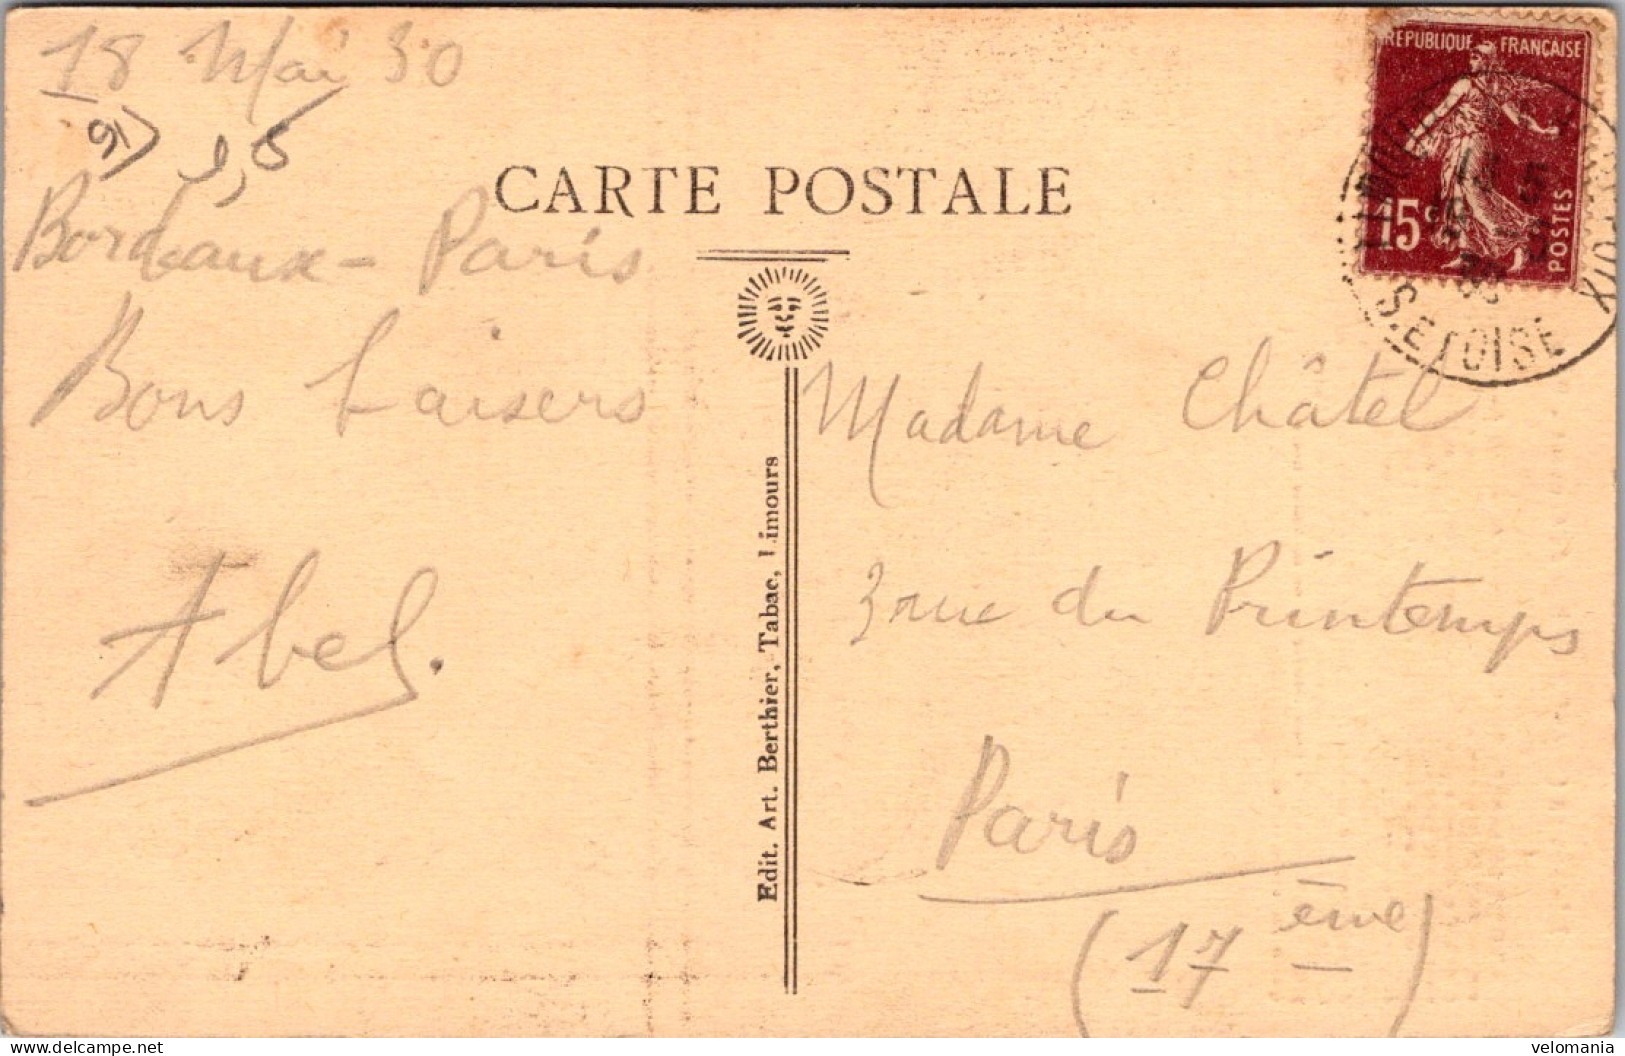 18 Mai 30
91)
3,5
Bordeaux - Paris
Bons baisers
Abel.
CARTE POSTALE
Edit. Art. Berthier, Tabac, Limours
RÉPUBLIQUE FRANÇAISE
15c
POSTES
S.ET OISE
Madame Châtel
3 rue du Printemps
Paris
(17 ème)
velomania.com